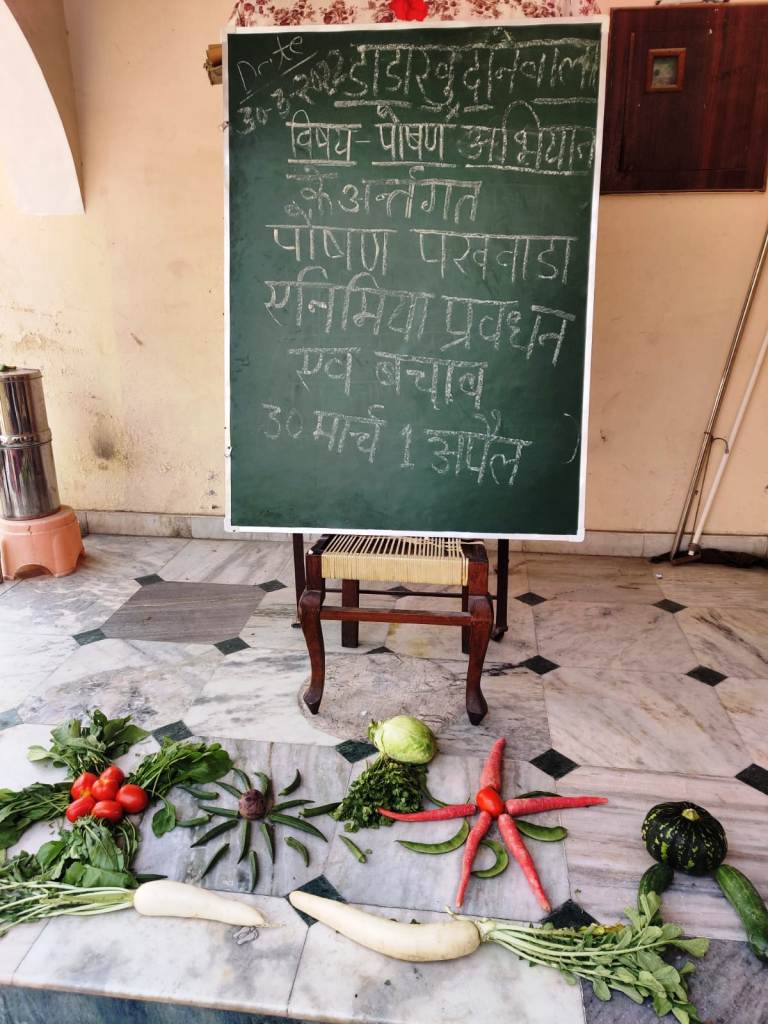 Date
30-3-202 डाडाखुदानेवाला
विषय - पोषण अभियान
के अर्न्तगत
पोषण पखवाडा
एनिमिया प्रवधन
एव बचाव
30 मार्च 1 अप्रैल